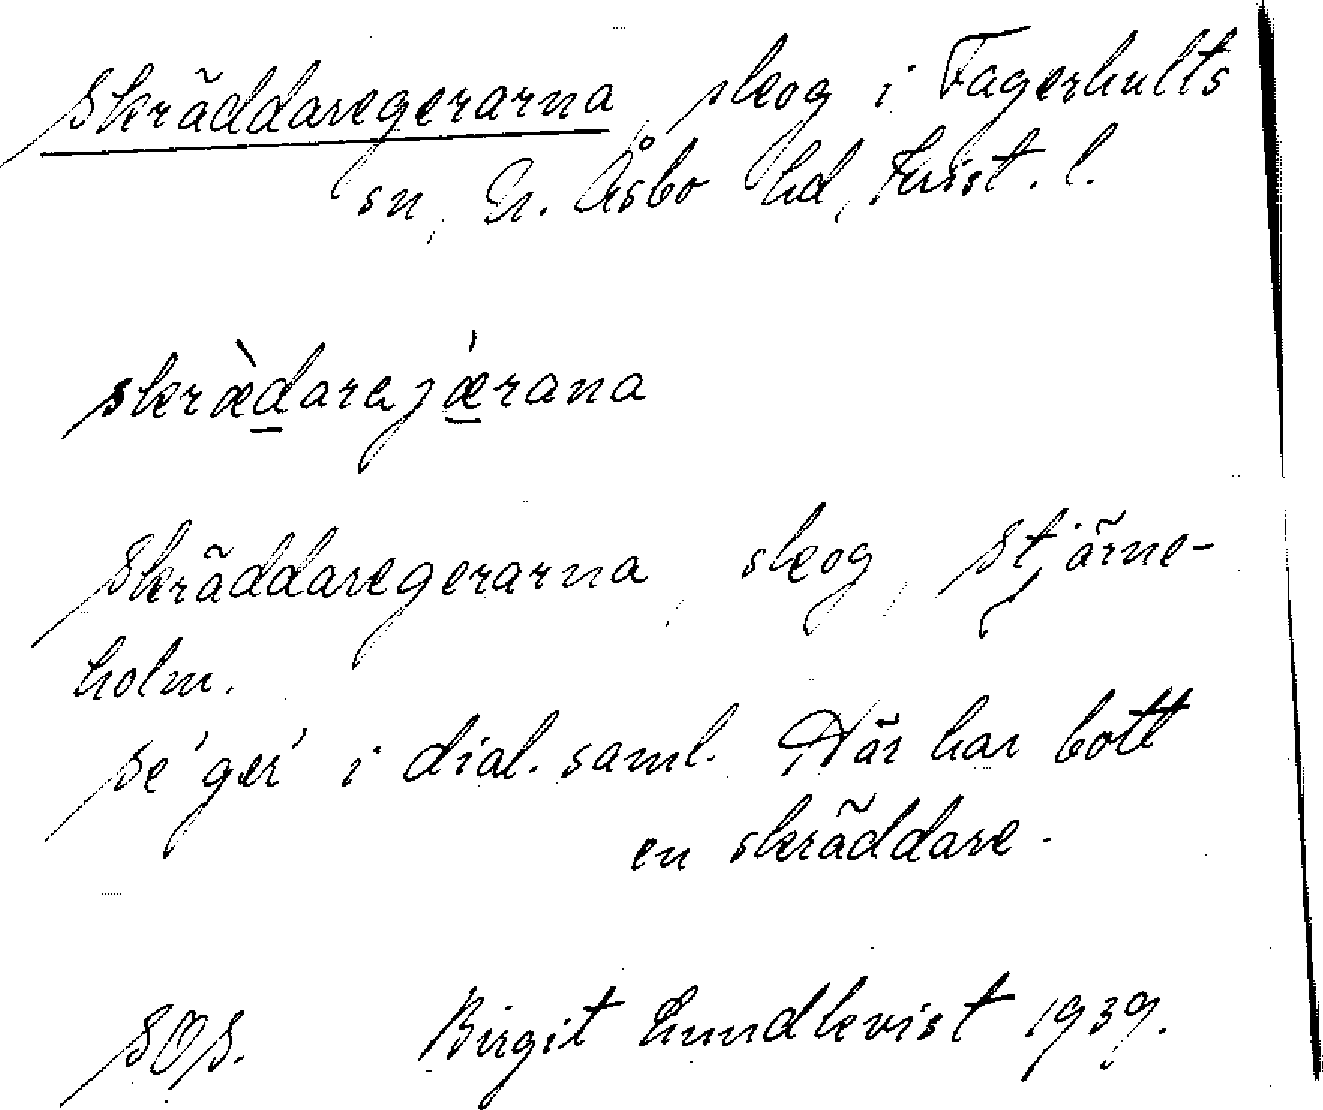 Skräddaregerarna, skog i Fagerhults
sn, N. Åsbo hd, Krist. l.
skræ̀darejǽrana
Skräddaregerarna, skog, Stjärne-
holm.
Se 'ger' i dial. saml. Här har bott
en skräddare.
SOS. Birgit Lundkvist 1939.